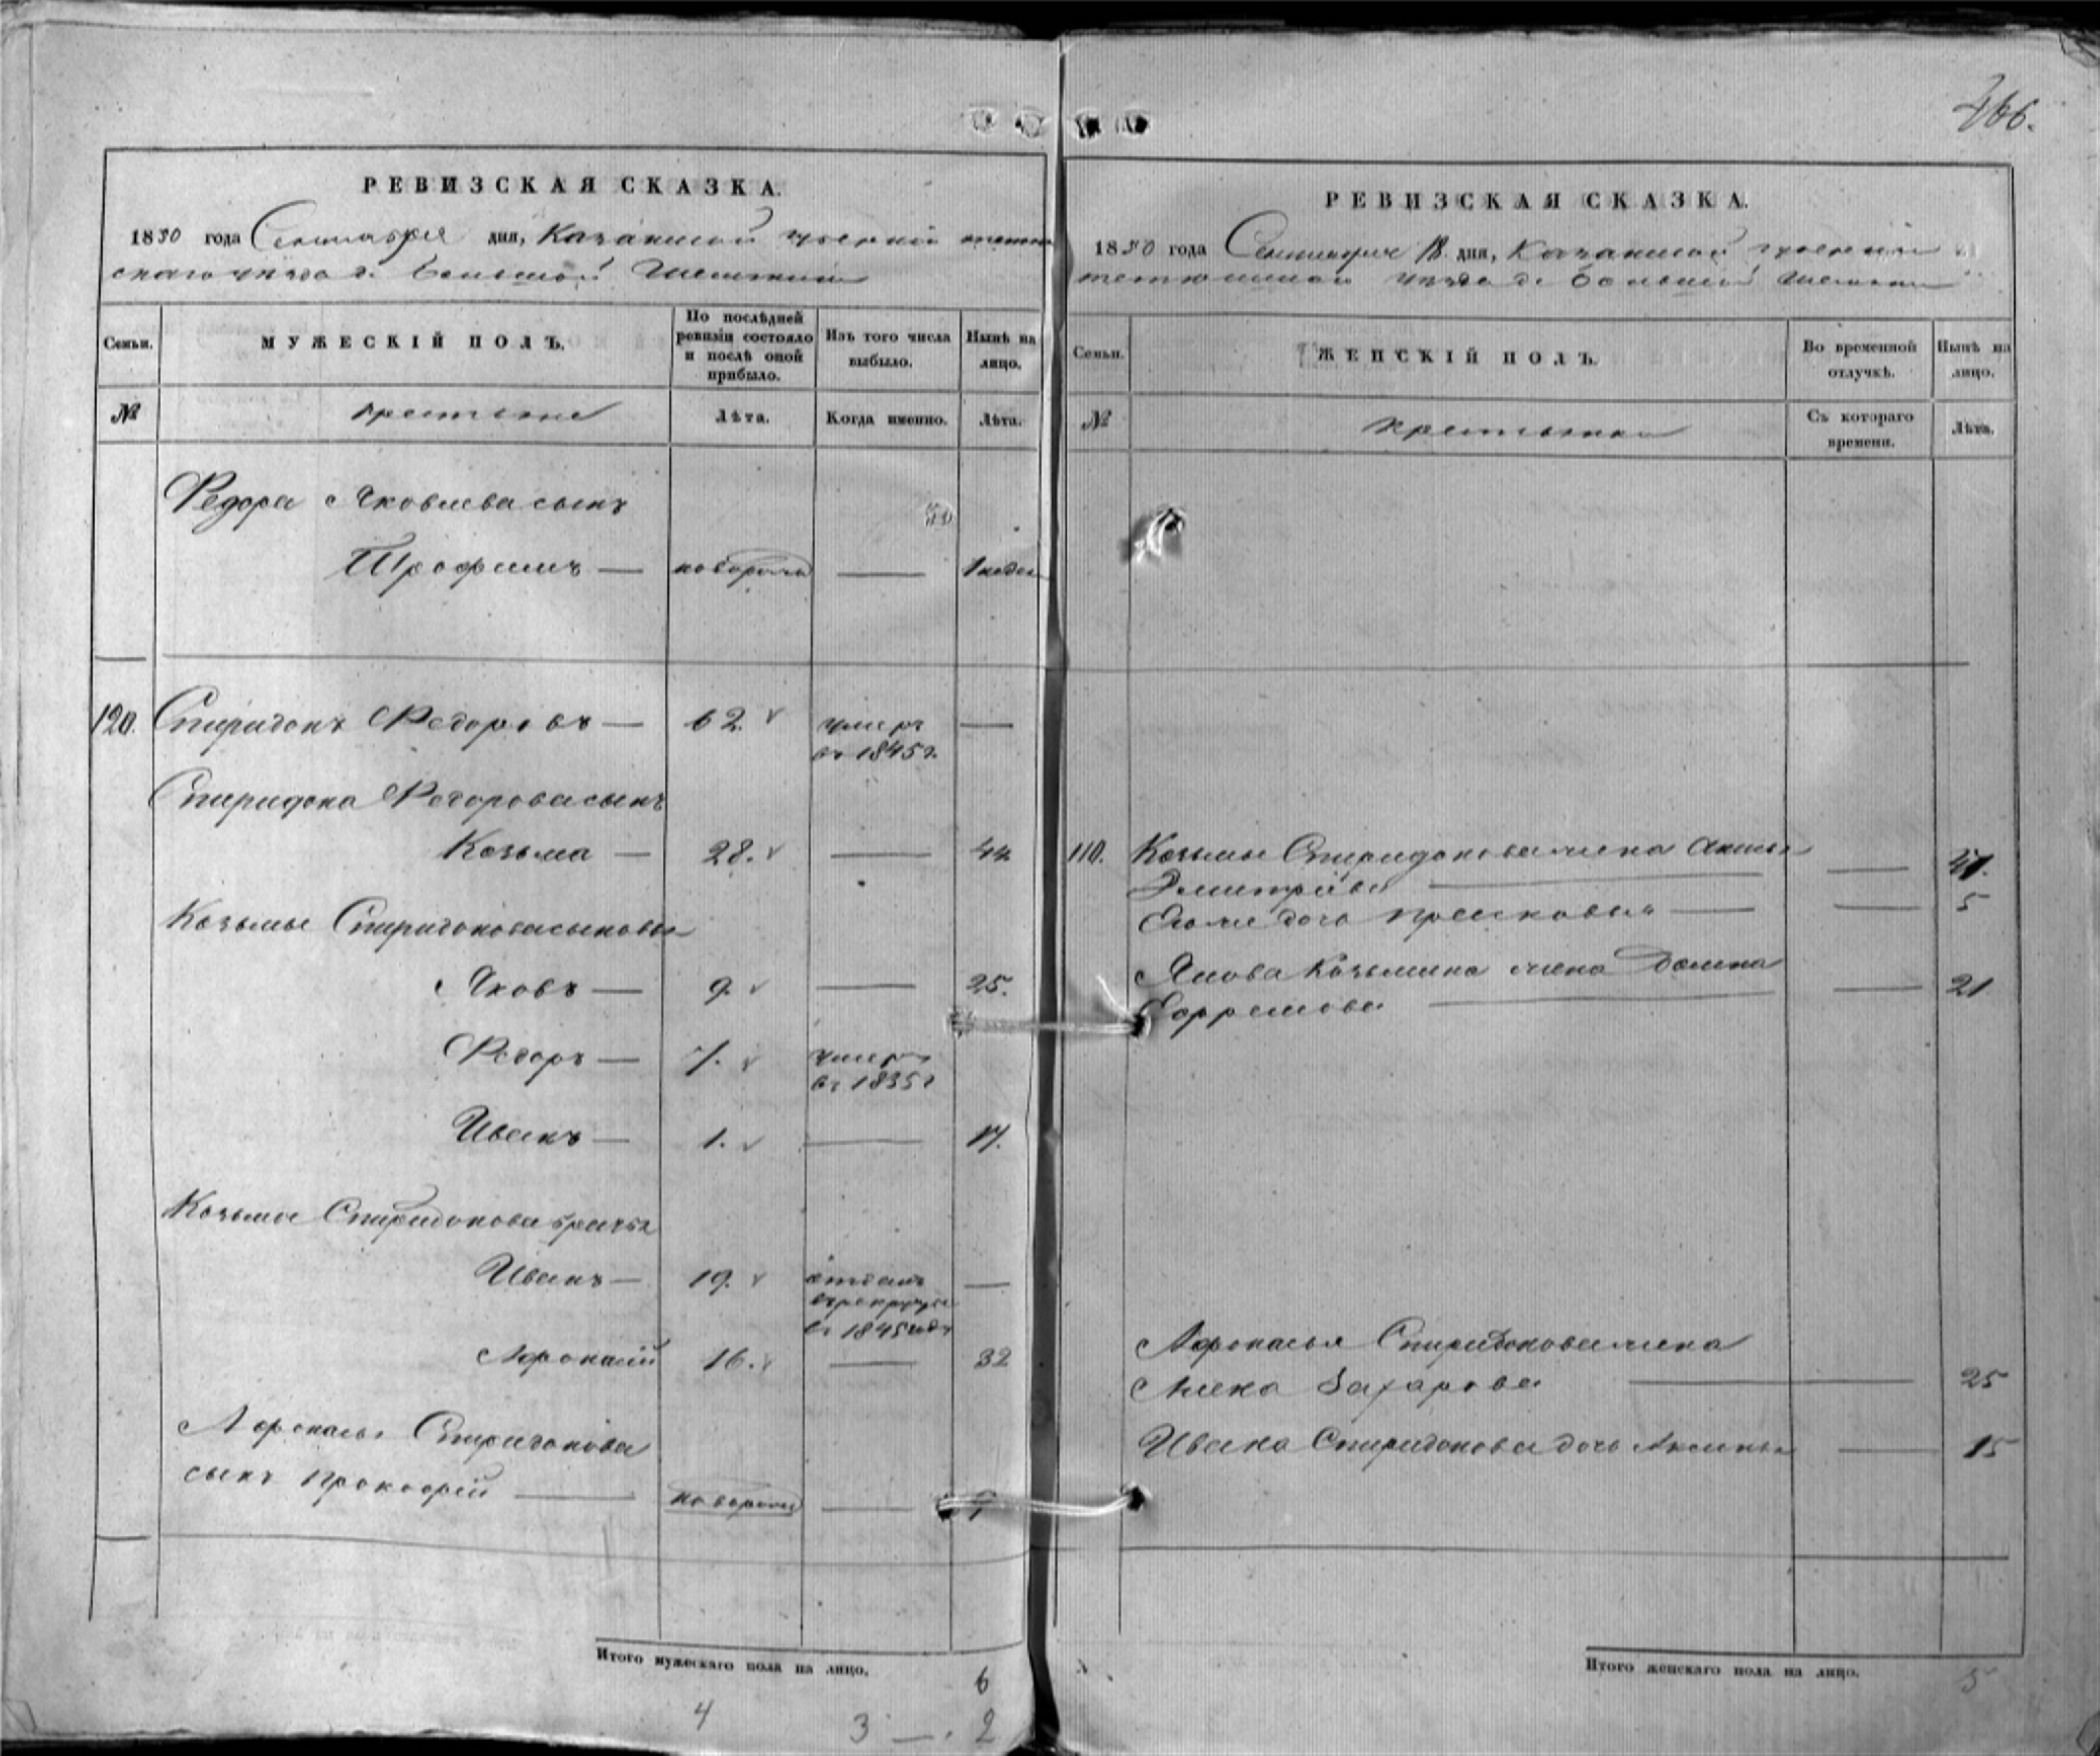 466.
РЕВИЗСКАЯ СКАЗКА.
1850 года Сентября дня, Казанской губернии тетю
скаго уезда д. Большой Шемякин
Семьи. МУЖЕСКІЙ ПОЛЪ. По послѣдней ревизіи состояло и послѣ оной прибыло. Изъ того числа выбыло. Нынѣ на лицо.
№ крестьяне Лѣта. Когда именно. Лѣта.
Федора Яковлева сынъ
Трофимъ — новорожд — 1 недел
120. Спиридонъ Федоровъ — 62. умеръ въ 1845 г. —
Спиридона Федорова сынъ
Козьма — 28. — 44
Козьмы Спиридонова сыновья
Яковъ — 9. — 25.
Федоръ — 7. умеръ въ 1835 г
Иванъ — 1. — 17.
Козьмы Спиридонова братья
Иванъ — 19. отданъ въ рекруты въ 1845 годъ —
Афонасій 16. — 32
Афонасья Спиридонова
сынъ Прокофій — новорожд — 7
Итого мужескаго пола на лицо. 6
4 3 — 2
РЕВИЗСКАЯ СКАЗКА.
1850 года Сентября 18 дня, Казанской губерніи
тетюшскаго уезда д. Большой Шемякин
Семьи. ЖЕНСКІЙ ПОЛЪ. Во временной отлучкѣ. Нынѣ на лицо.
№ крестьянки Съ котораго времени. Лѣта.
110. Козьмы Спиридонова жена
Дмитріева — — 41.
Его же дочь Прасковья — — 5
Якова Козьмина жена Домна
Ефремова — — 21
Афонасья Спиридонова жена
Анна Захарова — 25
Ивана Спиридонова дочь Аксинья — 15
Итого женскаго пола на лицо. 5